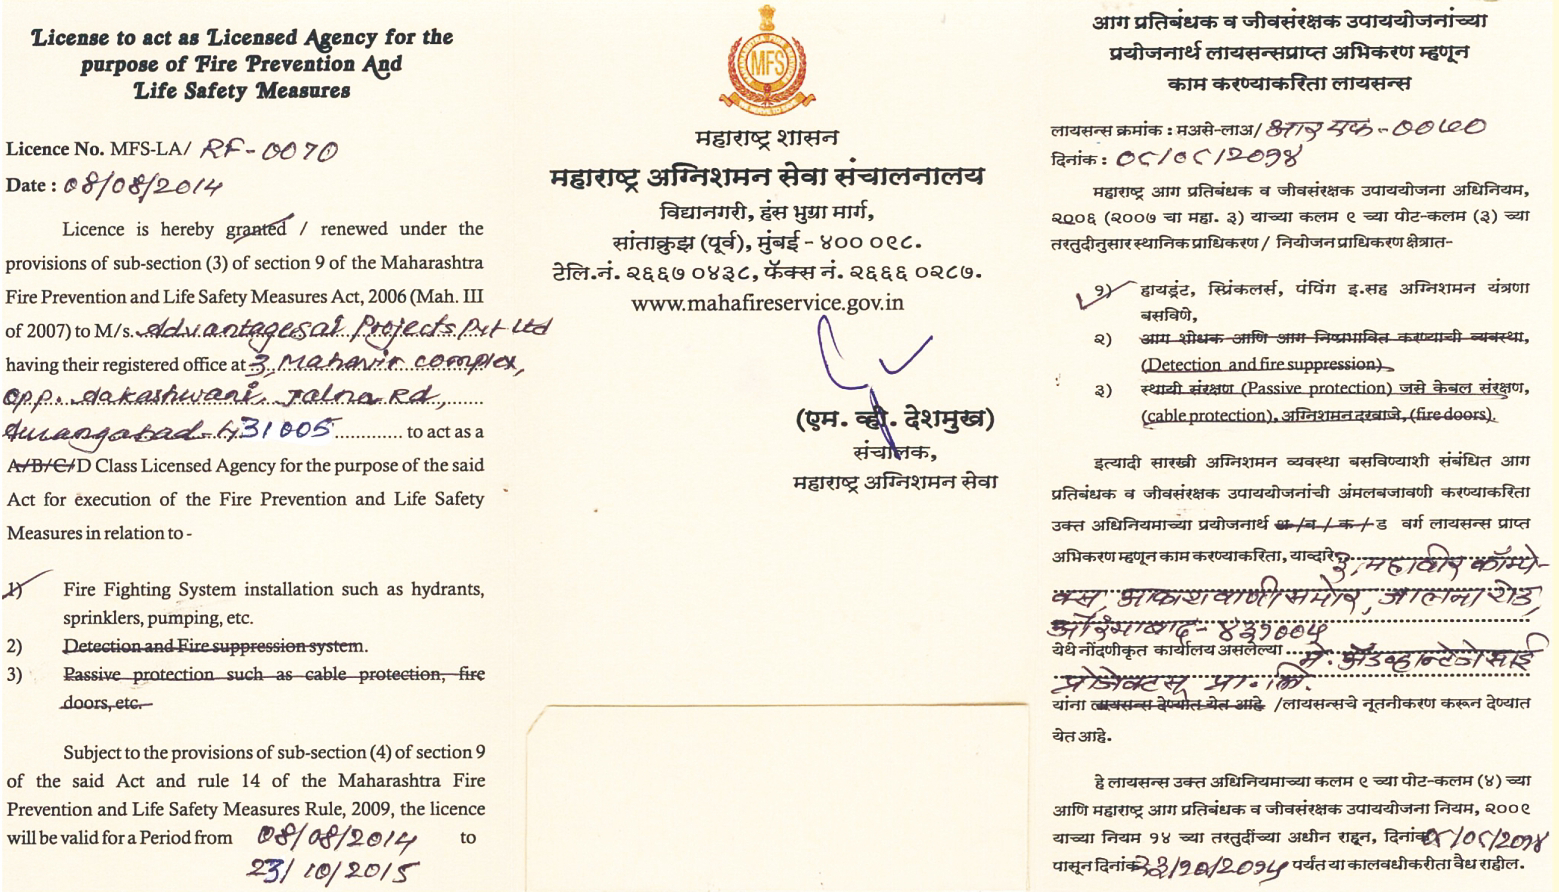 License to act as Licensed Agency for the
purpose of Fire Prevention And
Life Safety Measures
Licence No. MFS-LA/ RF-0070
Date : 08/08/2014
Licence is hereby granted / renewed under the
provisions of sub-section (3) of section 9 of the Maharashtra
Fire Prevention and Life Safety Measures Act, 2006 (Mah. III
of 2007) to M/s. Advantagesai Projects Pvt Ltd
having their registered office at 3, Mahavir complex,
opp. Aakashwani, Jalna Rd,
Aurangabad-431005 to act as a
A/B/C/D Class Licensed Agency for the purpose of the said
Act for execution of the Fire Prevention and Life Safety
Measures in relation to -
1) Fire Fighting System installation such as hydrants,
sprinklers, pumping, etc.
2) Detection and Fire suppression system.
3) Passive protection such as cable protection, fire
doors, etc.
Subject to the provisions of sub-section (4) of section 9
of the said Act and rule 14 of the Maharashtra Fire
Prevention and Life Safety Measures Rule, 2009, the licence
will be valid for a Period from 08/08/2014 to
23/10/2015
MFS
महाराष्ट्र शासन
महाराष्ट्र अग्निशमन सेवा संचालनालय
विद्यानगरी, हंस भुग्रा मार्ग,
सांताक्रुझ (पूर्व), मुंबई - ४०० ०९८.
टेलि.नं. २६६७ ०४३८, फॅक्स नं. २६६६ ०२८७.
www.mahafireservice.gov.in
(एम. व्ही. देशमुख)
संचालक,
महाराष्ट्र अग्निशमन सेवा
आग प्रतिबंधक व जीवसंरक्षक उपाययोजनांच्या
प्रयोजनार्थ लायसन्सप्राप्त अभिकरण म्हणून
काम करण्याकरिता लायसन्स
लायसन्स क्रमांक : मअसे-लाअ/ आर एफ-००७०
दिनांक : ०८/०८/२०१४
महाराष्ट्र आग प्रतिबंधक व जीवसंरक्षक उपाययोजना अधिनियम,
२००६ (२००७ चा महा. ३) याच्या कलम ९ च्या पोट-कलम (३) च्या
तरतुदीनुसार स्थानिक प्राधिकरण / नियोजन प्राधिकरण क्षेत्रात-
१) हायड्रंट, स्प्रिंकलर्स, पंपिंग इ.सह अग्निशमन यंत्रणा
बसविणे,
२) आग शोधक आणि आग निष्प्रभावित करण्याची व्यवस्था,
(Detection and fire suppression)
३) स्थायी संरक्षण (Passive protection) जसे केबल संरक्षण,
(cable protection), अग्निशमन दरवाजे, (fire doors).
इत्यादी सारखी अग्निशमन व्यवस्था बसविण्याशी संबंधित आग
प्रतिबंधक व जीवसंरक्षक उपाययोजनांची अंमलबजावणी करण्याकरिता
उक्त अधिनियमाच्या प्रयोजनार्थ अ / ब / क / ड वर्ग लायसन्स प्राप्त
अभिकरण म्हणून काम करण्याकरिता, याव्दारे ३, महावीर कॉम्पे-
क्स, आकाशवाणी समोर, जालना रोड,
औरंगाबाद- ४३१००५
येथे नोंदणीकृत कार्यालय असलेल्या मे. ॲडव्हान्टेजे साई
प्रोजेक्टस् प्रा. लि.
यांना लायसन्स देण्यात येत आहे /लायसन्सचे नूतनीकरण करून देण्यात
येत आहे.
हे लायसन्स उक्त अधिनियमाच्या कलम ९ च्या पोट-कलम (४) च्या
आणि महाराष्ट्र आग प्रतिबंधक व जीवसंरक्षक उपाययोजना नियम, २००९
याच्या नियम १४ च्या तरतुदींच्या अधीन राहून, दिनांक ०८/०८/२०१४
पासून दिनांक २३/१०/२०१५ पर्यंत या कालवधीकरीता वैध राहील.